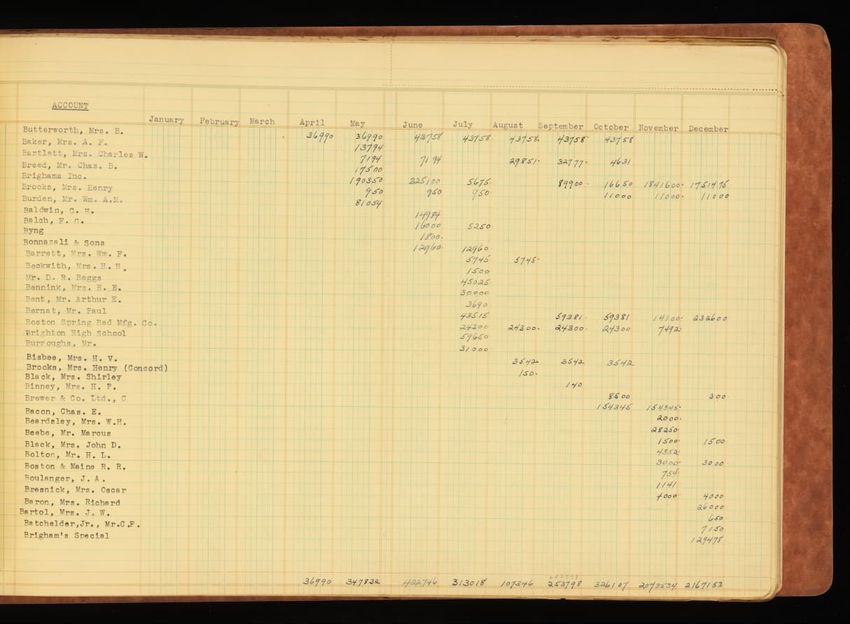 ACCOUNT
January February March April May June July August September October November December
Butterworth, Mrs. B. 36990 36990 43758 43758 43758 43758 43758
Baker, Mrs. A. F. 13794
Bartlett, Mrs. Charles W. 7194 7194 29851 32777 4631
Breed, Mr. Chas. B. 17500
Brighams Inc. 190350 325100 5675 89900 16650 1841600 1751475
Brooks, Mrs. Henry 950 950 950 11000 11000 11000
Burden, Mr. Wm. A.M. 81054
Baldwin, C. H. 14984
Balch, F. G. 16000 5250
Byng 1800
Bonnazali & Sons 12960 12960
Barrett, Mrs. Wm. F. 5745 5745
Beckwith, Mrs. H. H. 1500
Mr. D. R. Beggs 45025
Bennink, Mrs. H. E. 30000
Bent, Mr. Arthur E. 3690
Bernat, Mr. Paul 43515 59381 59381 14100 232600
Boston Spring Bed Mfg. Co. 24300 24300 24300 24300 7492
Brighton High School 59650
Burroughs, Mr. 31000
Bisbee, Mrs. H. V. 3542 3542 3542
Brooks, Mrs. Henry (Concord) 150
Black, Mrs. Shirley 140
Binney, Mrs. H. P. 8500 300
Brewer & Co. Ltd., C 154345 154345
Bacon, Chas. E. 2000
Beardsley, Mrs. W.H. 28250
Beebe, Mr. Marcus 1500 1500
Black, Mrs. John D. 4352
Bolton, Mr. H. L. 3000 3000
Boston & Maine R. R. 754
Boulanger, J. A. 1141
Bresnick, Mrs. Oscar 4000 4000
Baron, Mrs. Richard 26000
Bartol, Mrs. J. W. 650
Batchelder,Jr., Mr.C.F. 7150
Brigham's Special 129478
36990 347832 422746 313018 107346 253798 326107 2073534 2167153